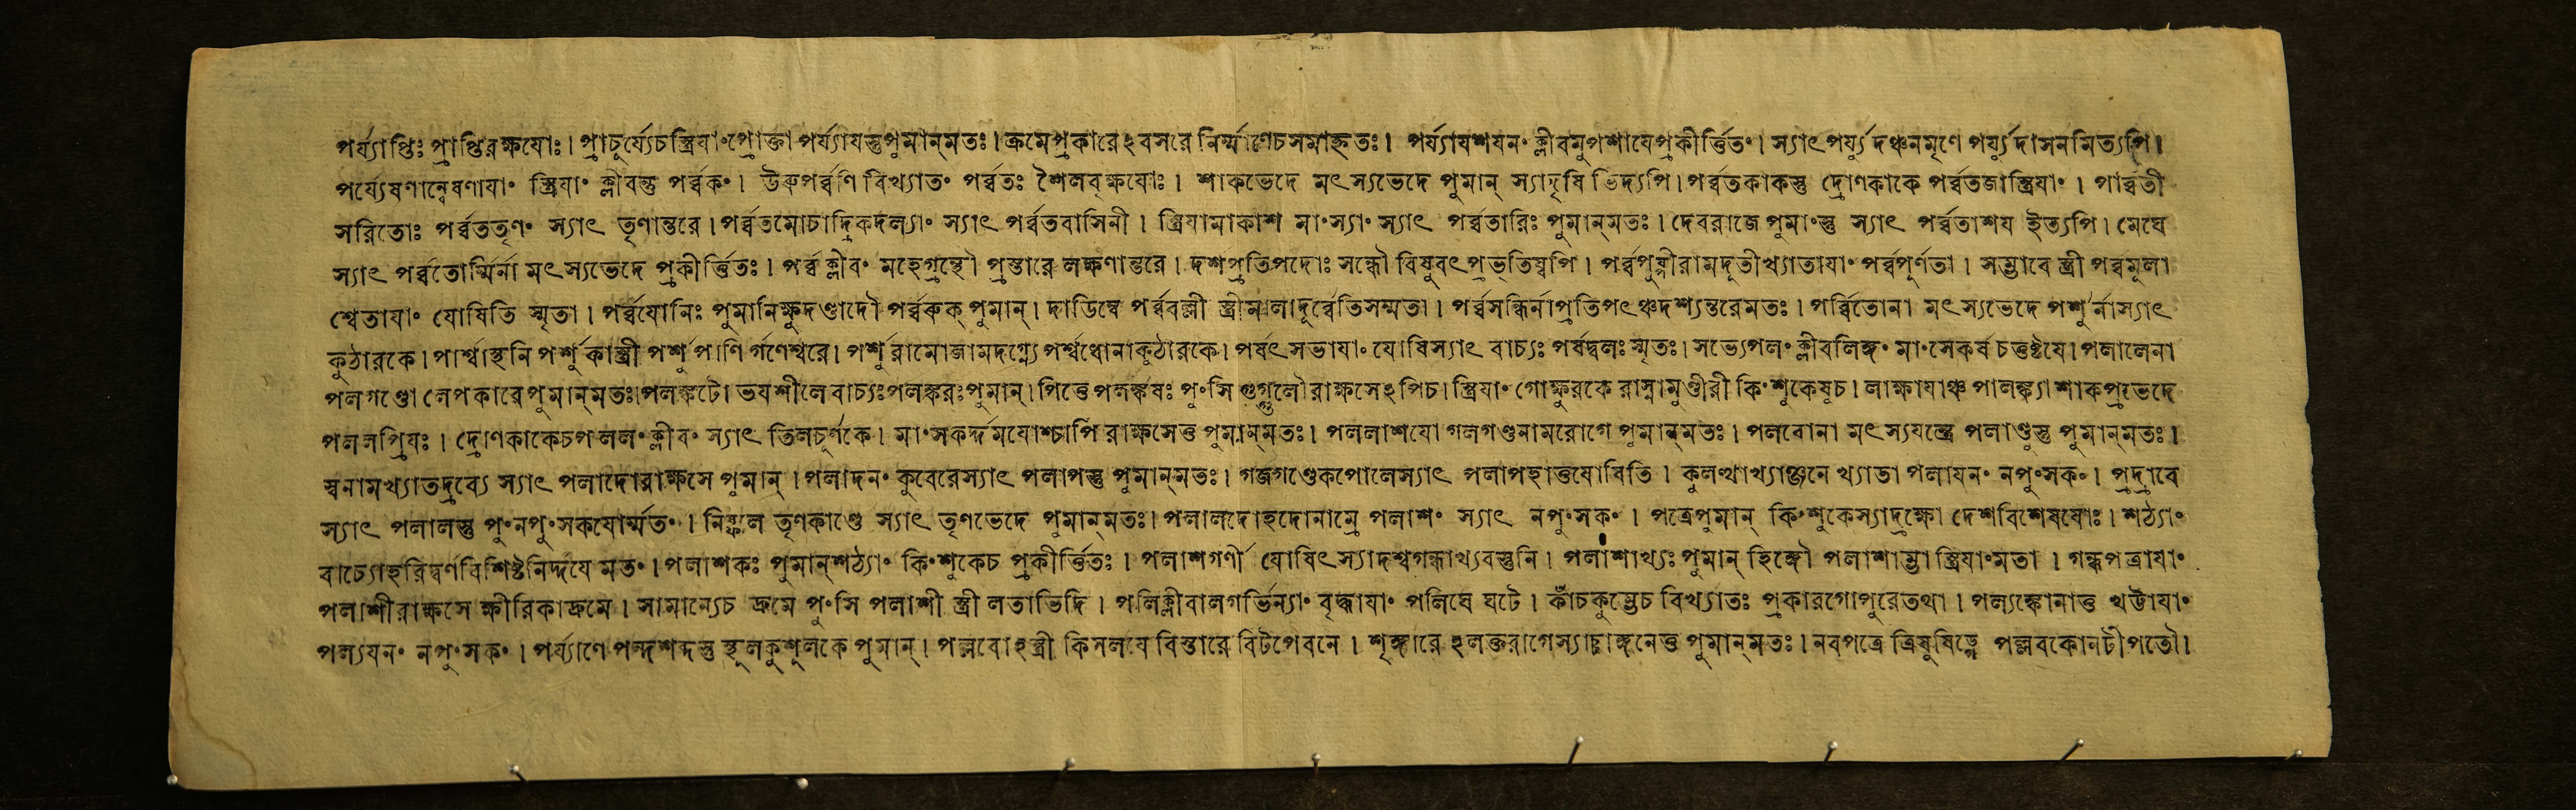 পর্য্যাপ্তিঃ প্রাপ্তিরক্ষযোঃ। প্রাচুর্য্যেচস্ত্রিযাং প্রোক্তা পর্য্যাযস্তুপুমান্মতঃ। ক্রমেপ্রকারেঽবসরে নির্ম্মাণেচসমাহৃতঃ। পর্য্যাযশযনং ক্লীবমুপশাযেপ্রকীর্ত্তিতং। স্যাৎ পর্য্যুদঞ্চনমৃণে পর্য্যুদাসনমিত্যপি।
পর্য্যেষণান্বেষণাযাং স্ত্রিযাং ক্লীবন্তু পর্ব্বকং। উরুপর্ব্বণি বিখ্যাতং পর্ব্বতঃ শৈলবৃক্ষযোঃ। শাকভেদে মৎস্যভেদে পুমান্ স্যাদৃষি ভিদ্যপি। পর্ব্বতকাকস্তু দ্রোণকাকে পর্ব্বতজাস্ত্রিযাং। পার্ব্বতী
সরিতোঃ পর্ব্বততৃণং স্যাৎ তৃণান্তরে। পর্ব্বতমোচাদ্রিকদল্যাং স্যাৎ পর্ব্বতবাসিনী। স্ত্রিযামাকাশ মাংস্যাং স্যাৎ পর্ব্বতারিঃ পুমান্মতঃ। দেবরাজে পুমাংস্তু স্যাৎ পর্ব্বতাশয ইত্যপি। মেঘে
স্যাৎ পর্ব্বতোর্ম্মির্না মৎস্যভেদে প্রকীর্ত্তিতঃ। পর্ব্ব ক্লীবং মহেগ্রন্থৌ প্রস্তারে লক্ষণান্তরে। দশপ্রতিপদোঃ সন্ধৌ বিষুবৎপ্রভৃতিষ্বপি। পর্ব্বপুষ্পীরামদূতীখ্যাতাযাং পর্ব্বপূর্ণতা। সম্ভাবে স্ত্রী পর্ব্বমূলা
শ্বেতাযাং যোষিতি স্মৃতা। পর্ব্বযোনিঃ পুমানিক্ষুদণ্ডাদৌ পর্ব্বরুক্ পুমান্। দাডিম্বে পর্ব্ববল্লী স্ত্রীমালাদূর্ব্বেতিসম্মতা। পর্ব্বসন্ধির্নাপ্রতিপৎঞ্চদশ্যন্তরেমতঃ। পর্ব্বিতোনা মৎস্যভেদে পর্শুর্নাস্যাৎ
কুঠারকে। পার্শ্বাস্থনি পর্শুকাস্ত্রী পর্শুপাণি র্গণেশ্বরে। পর্শুরামোজামদগ্ন্যে পর্শ্বধোনাকুঠারকে। পর্ষৎসভাযাং যোষিস্যাৎ বাচ্যঃ পর্ষদ্বলঃ স্মৃতঃ। সভ্যেপলং ক্লীবলিঙ্গং মাংসেকর্ষ চতুষ্টযে। পলালেনা
পলগণ্ডো লেপকারেপুমান্মতঃ। পলঙ্কটো ভযশীলেবাচ্যঃপলঙ্করঃপুমান্। পিত্তে পলঙ্কষঃ পুংসি গুগ্গুলৌরাক্ষসেঽপিচ। স্ত্রিযাং গোক্ষুরকে রাস্নামুণ্ডীরী কিংশুকেষুচ। লাক্ষাযাঞ্চ পালঙ্ক্যা শাকপ্রভেদে
পললপ্রিযঃ। দ্রোণকাকেচপললং ক্লীবং স্যাৎ তিলচূর্ণকে। মাংসকর্দ্দমযোশ্চাপি রাক্ষসেতু পুমান্মতঃ। পললাশযো গলগণ্ডনামরোগে পুমান্মতঃ। পলবোনা মৎস্যযন্ত্রে পলাণ্ডুস্তু পুমান্মতঃ।
স্বনামখ্যাতদ্রব্যে স্যাৎ পলাদোরাক্ষসে পুমান্। পলাদনং কুবেরেস্যাৎ পলাপস্তু পুমান্মতঃ। গজগণ্ডেকপোলেস্যাৎ পলাপহাতুযোষিতি। কুলত্থাখ্যাঞ্জনে খ্যাতা পলাযনং নপুংসকং। প্রদ্রাবে
স্যাৎ পলালস্তু পুংনপুংসকযোর্ম্মতং। নিষ্ফল তৃণকাণ্ডে স্যাৎ তৃণভেদে পুমান্মতঃ। পলালদোহদোনাম্রে পলাশং স্যাৎ নপুংসকং। পত্রেপুমান্ কিংশুকেস্যাদ্রক্ষো দেশবিশেষযোঃ। শঠ্যাং
বাচ্যোহরিদ্বর্ণবিশিষ্টনির্দ্দযে মতং। পলাশকঃ পুমান্শঠ্যাং কিংশুকেচ প্রকীর্ত্তিতঃ। পলাশগর্ণী যোষিৎস্যাদশ্বগন্ধাখ্যবস্তুনি। পলাশাখ্যঃ পুমান্ হিঙ্গৌ পলাশাম্ভা স্ত্রিযাংমতা। গন্ধপত্রাযাং
পলাশীরাক্ষসে ক্ষীরিকাদ্রুমে। সামান্যেচ দ্রুমে পুংসি পলাশী স্ত্রী লতাভিদি। পলিক্লীবালগর্ভিন্যাং বৃদ্ধাযাং পলিঘে ঘটে। কাঁচকুম্ভেচ বিখ্যাতঃ প্রকারগোপুরেতথা। পল্যঙ্কোনাতু খট্টাযাং
পল্যযনং নপুংসকং। পর্য্যাণে পল্দশব্দস্তু স্থূলকুশূলকে পুমান্। পল্লবোঽস্ত্রী কিসলযে বিস্তারে বিটপেবনে। শৃঙ্গারেঽলক্তরাগেস্যাচ্চাঙ্গনেতু পুমান্মতঃ। নবপত্রে ত্রিষুষিড্গে পল্লবকোনটীপতৌ।